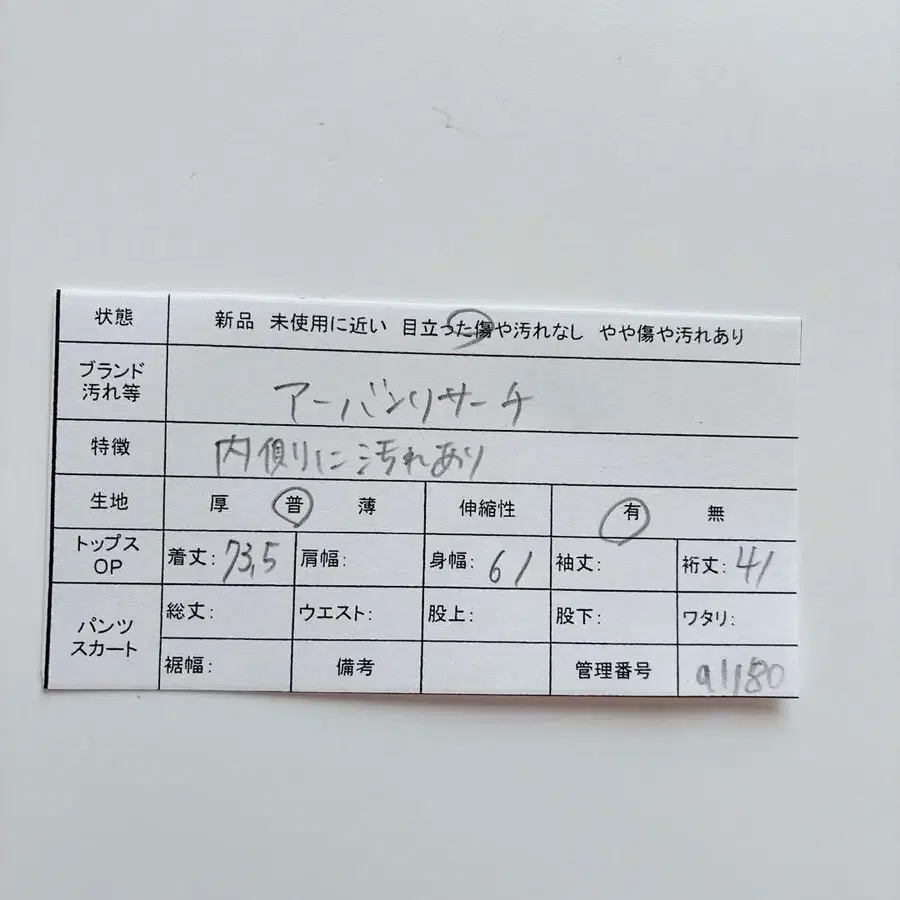 状態 新品 未使用に近い 目立った傷や汚れなし やや傷や汚れあり
ブランド
汚れ等
アーバンリサーチ
特徴 内側に汚れあり
生地 厚 普 薄 伸縮性 有 無
トップス
OP
着丈: 73.5 肩幅: 身幅: 61 袖丈: 裄丈: 41
パンツ
スカート
総丈: ウエスト: 股上: 股下: ワタリ:
裾幅: 備考 管理番号 a1180